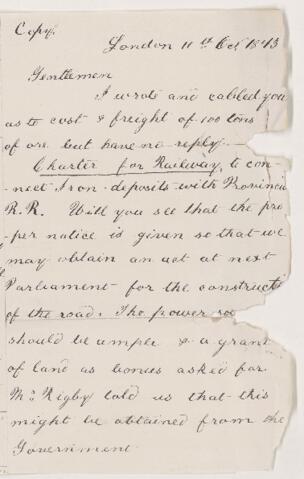 Copy.
London 11th Oct 1873
Gentlemen
I wrote and cabled you
as to cost & freight of 100 tons
of ore but have no reply.
Charter for Railway to con-
nect Iron deposits with Provincia
R.R. Will you see that the pro
per notice is given so that we
may obtain an act at next
Parliament for the constructi
of the road. The power
should be ample & a grant
of land as bonus asked for
Mr. Rigby told us that this
might be obtained from the
Government